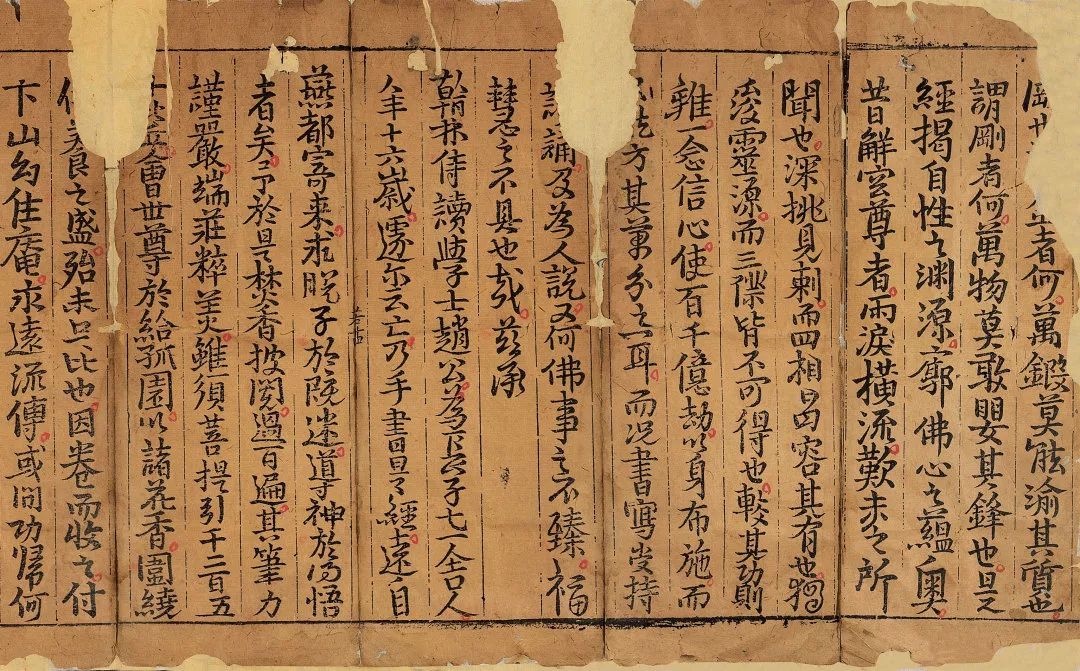 者何萬鍛莫能渝其質也
謂剛者何萬物莫敢嬰其鋒也是之
經揭自性之淵源廓佛心之蘊奧
昔解空尊者雨淚橫流歎未之所
聞也深挑見刺而四相曷容其有也獨
發靈源而三際皆不可得也較其功則
雖一念信心使百千億劫以身布施而
方其萬分之一耳而況書寫受持
讀誦及為人說又何佛事之不臻福
慧之不具也哉茲承
翰林侍讀學士趙公為亡子七一舍人
年十六歲遽尔云亡乃手書是之經遠自
燕都寄來求脫子於既迷導神於悟
者矣予於是焚香披閱過百遍其筆力
謹嚴端莊粹美雖須菩提引千二百五
會世尊於給孤園以諸花香圍繞
供養之盛殆未足比也因卷而收之付
卞山幻住庵永遠流傳或問功歸何